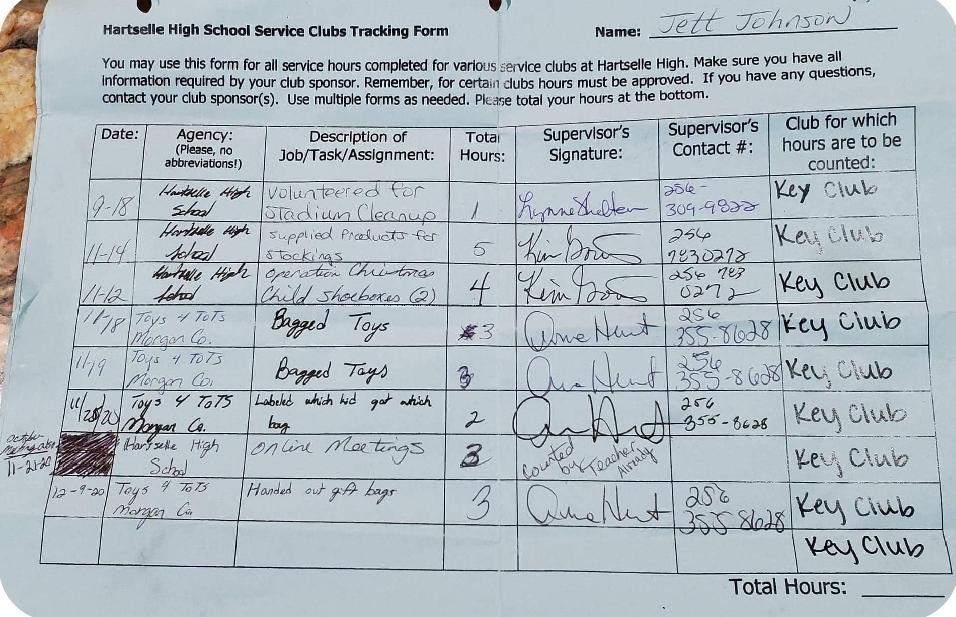 Hartselle High School Service Clubs Tracking Form
Name: Jett Johnson
You may use this form for all service hours completed for various service clubs at Hartselle High. Make sure you have all
information required by your club sponsor. Remember, for certain clubs hours must be approved. If you have any questions,
contact your club sponsor(s). Use multiple forms as needed. Please total your hours at the bottom.
Date:
Agency:
(Please, no
abbreviations!)
Description of
Job/Task/Assignment:
Total
Hours:
Supervisor's
Signature:
Supervisor's
Contact #:
Club for which
hours are to be
counted:
9-18
Hartselle High
School
Volunteered for
Stadium Cleanup
1
Lynne Shelton
256-
309-9822
Key Club
11-14
Hartselle High
School
supplied Products for
stockings
5
256
7830272
Key Club
11-12
Hartselle High
School
operation Christmas
Child shoeboxes (2)
4
256 783
0272
Key Club
11/18
Toys 4 ToTs
Morgan Co.
Bagged Toys
3
256
355-8628
Key Club
11/19
Toys 4 ToTs
Morgan Co.
Bagged Toys
3
256
355-8628
Key Club
11/28/20
Toys 4 ToTs
Morgan Co.
Labeled which kid got which
bag
2
256
355-8628
Key Club
october
11-21-20
Hartselle High
School
online Meetings
3
Counted
by Teacher
Already
Key Club
12-9-20
Toys 4 ToTs
Morgan Co.
Handed out gift bags
3
256
355-8628
Key Club
Key Club
Total Hours: